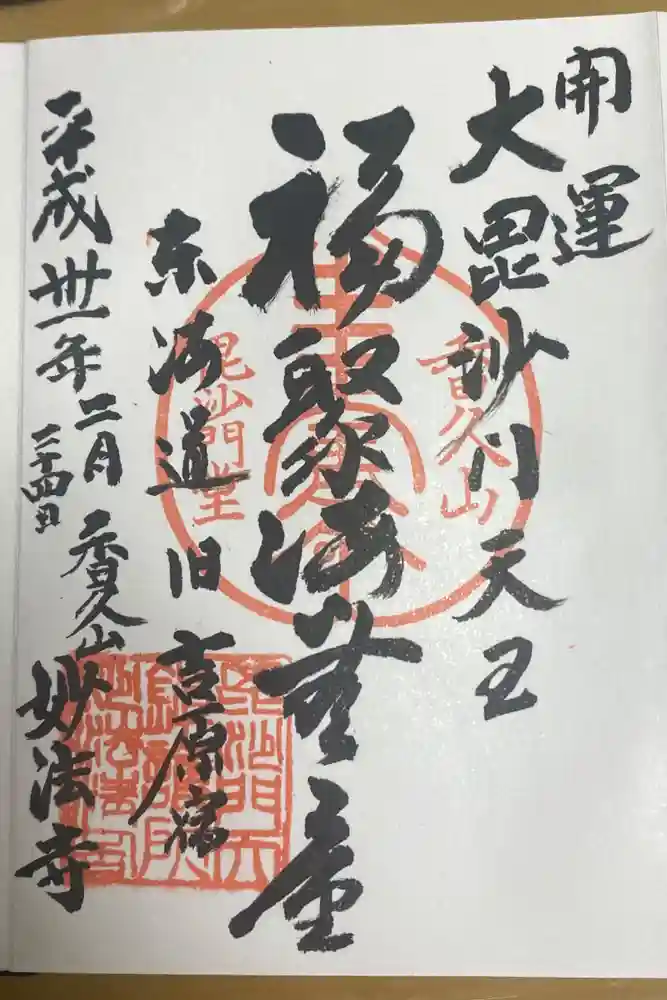 開運
大毘沙門天王
福聚海無量
東海道旧吉原宿
平成卅一年二月二十四日
香久山妙法寺
香久山
毘沙門堂